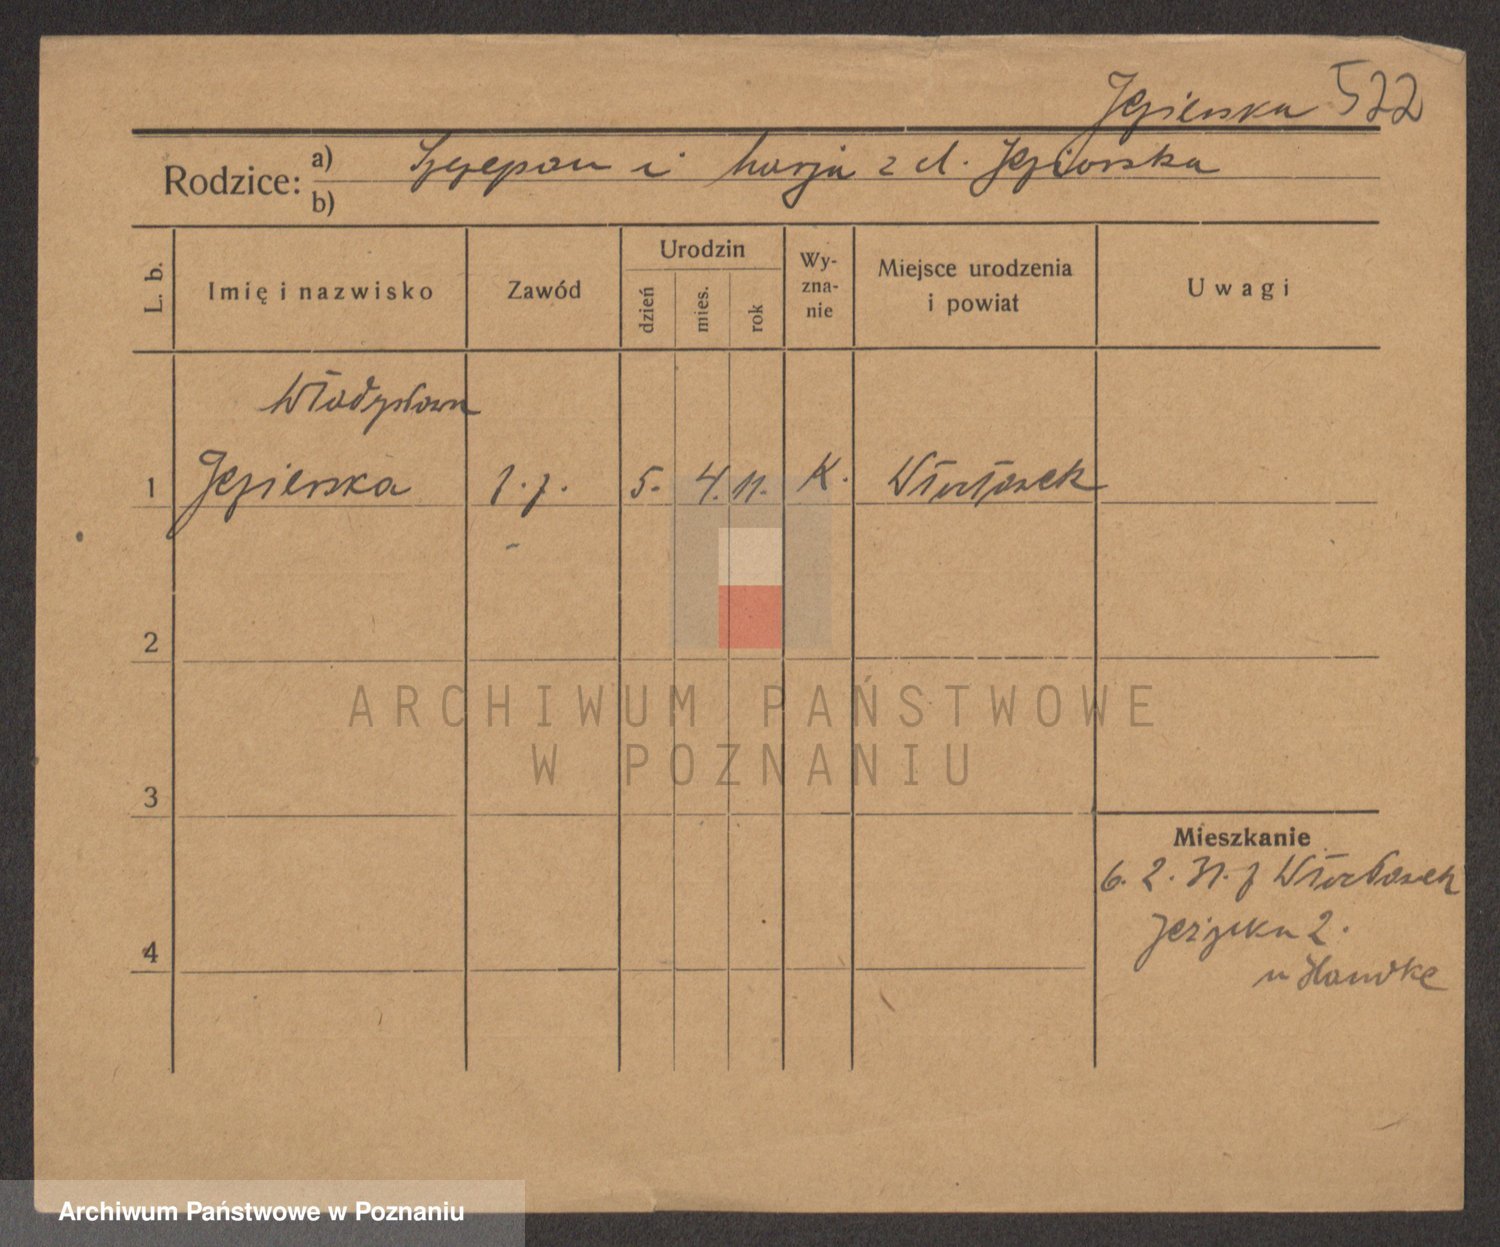 Jezierska 522
Rodzice: a) Szczepan i Marja z d. Jeziorska
b)
L. b. Imię i nazwisko Zawód Urodzin dzień mies. rok Wy-zna-nie Miejsce urodzenia i powiat Uwagi
Władysława
1 Jezierska 5. 4. 11. K. Włocławek
2
ARCHIWUM PAŃSTWOWE
W POZNANIU
3
Mieszkanie
6. 2. 31. z Włocławek
2.
4
u Handke
Archiwum Państwowe w Poznaniu